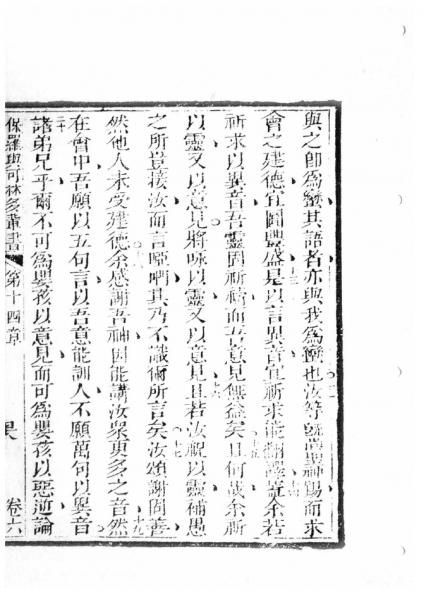 與之卽為蠻其語者亦與我為蠻也汝等旣慕神賜而求
會之建德宜圖豐盛是以言異音宜祈求能繙譯葢余若
祈求以異音吾靈固祈禱而吾意見無益矣且何哉余祈
以靈又以意見將咏以靈又以意見且若汝祝以靈補愚
之所豈接汝而言啞們其乃不識爾所言矣汝頌謝固善
然他人未受建德余感謝吾神因能講汝眾更多之音然
在會中吾願以五句言以吾意能訓人不願萬句以異音
諸弟兄乎爾不可為嬰孩以意見而可為嬰孩以惡逆論
保羅與可林多輩書 第十四章 卷六